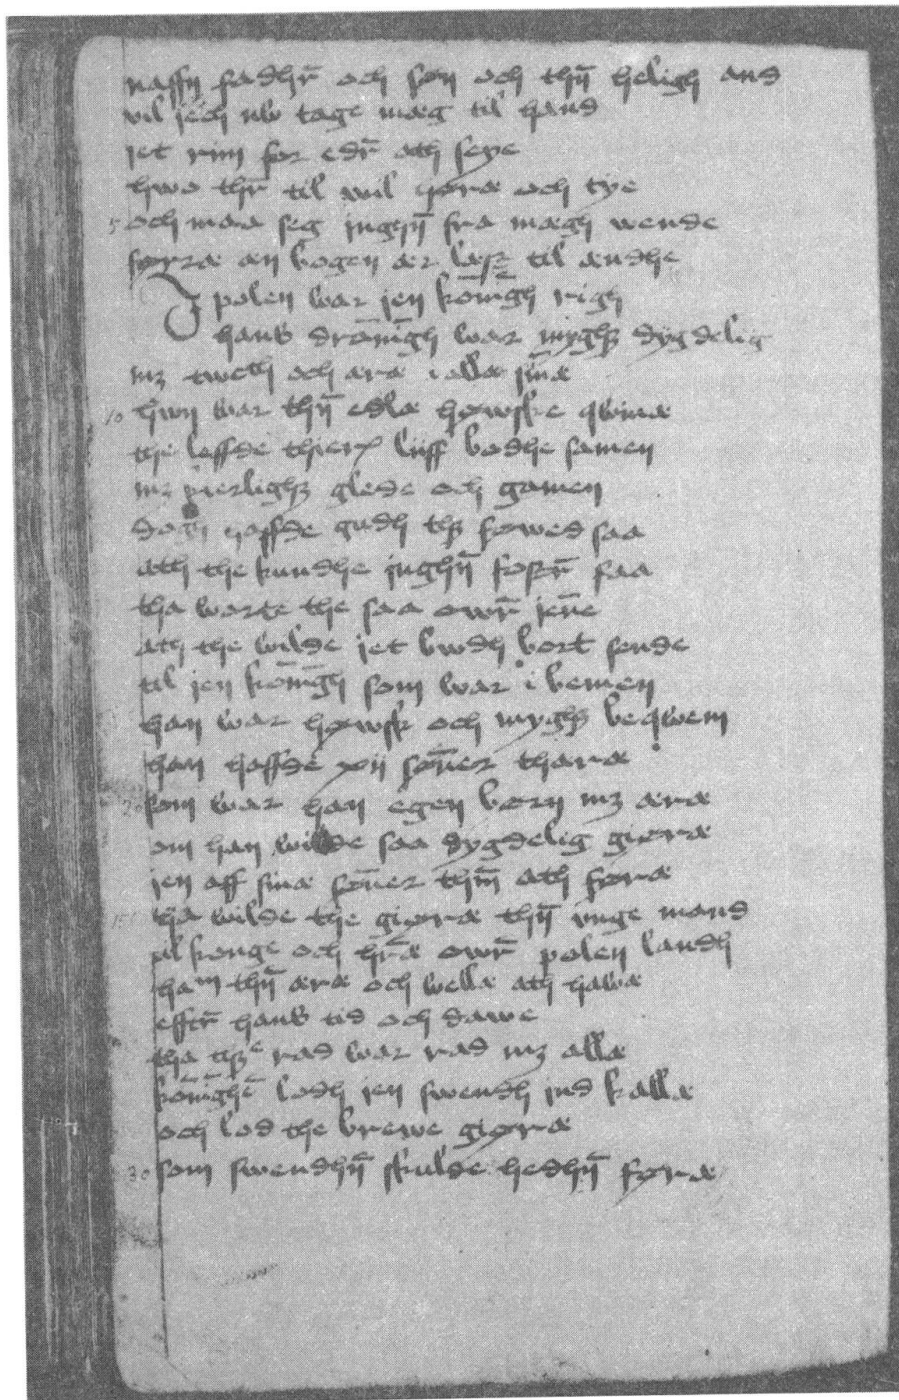 naffn fadhr̄ och søn och thn̄ heligh and
wil jech nw tage mæg til hand
jet rim for edr̄ ath seye
hwo thr̄ til wil høræ och tye
5 och maa seg inghn̄ fra mægh wende
førræ æn bogen ær læst til ændhe
J polen war jen kōnīgh righ
hans drōnīgh war myghꝫ dygdelig
mꝫ twcth och æræ i allæ sinæ
10 hwn war thn̄ edlæ høwske qwinæ
the leffde thieræ liiff bodhe samen
mꝫ pierlighꝫ glede och gamen
dogh haffde gudh thꝫ føwed saa
ath the kundhe inghn̄ fostr̄ faa
tha worte the saa owr̄ jēne
ath the wilde jet bwdh bort sende
til jen kōnīgh som war i bemen
han war høwsk och myghꝫ beqwem
han haffde xii sōner thæræ
20 som war han egen børn mꝫ æræ
om han wilde saa dygdelig giøræ
jen aff sinæ sōner thm̄ ath føræ
tha wilde the giøræ thn̄ unge mand
til konge och hr̄æ owr̄ polen landh
ham thn̄ æræ och wellæ ath hawæ
effter̄ hans tid och dawe
tha thꝫe rad war rad mꝫ allæ
kōnīghē lodh jen swendh ind kallæ
och lod the brewe giøræ
30 som swendhn̄ skulde hedhn̄ føræ